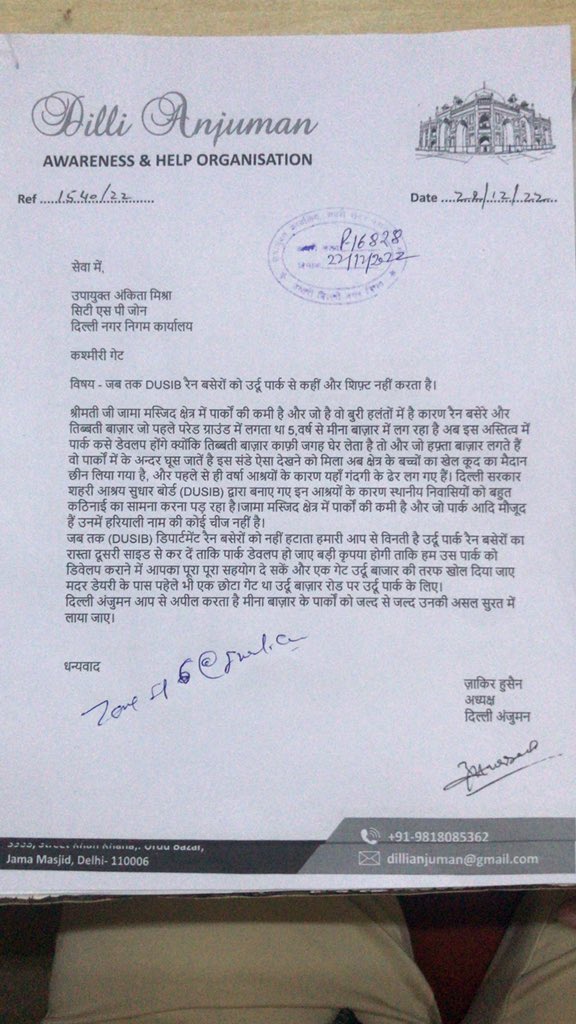 Dilli Anjuman
AWARENESS & HELP ORGANISATION
Ref ....1540/22.......
Date ...28/12/22...
R-16828
22/12/2022
सेवा में,
उपायुक्त अंकिता मिश्रा
सिटी एस पी जोन
दिल्ली नगर निगम कार्यालय
कश्मीरी गेट
विषय - जब तक DUSIB रैन बसेरों को उर्दू पार्क से कहीं और शिफ़्ट नहीं करता है।
श्रीमती जी जामा मस्जिद क्षेत्र में पार्कों की कमी है और जो है वो बुरी हलंतों में है कारण रैन बसेरे और
तिब्बती बाज़ार जो पहले परेड ग्राउंड में लगता था 5,वर्ष से मीना बाज़ार में लग रहा है अब इस अस्तित्व में
पार्क कसे डेवलप होंगे क्योंकि तिब्बती बाज़ार काफ़ी जगह घेर लेता है तो और जो हफ़्ता बाज़ार लगते हैं
वो पार्कों में के अन्दर घूस जातें है इस संडे ऐसा देखने को मिला अब क्षेत्र के बच्चों का खेल कूद का मैदान
छीन लिया गया है, और पहले से ही वर्षा आश्रयों के कारण यहाँ गंदगी के ढेर लग गए हैं। दिल्ली सरकार
शहरी आश्रय सुधार बोर्ड (DUSIB) द्वारा बनाए गए इन आश्रयों के कारण स्थानीय निवासियों को बहुत
कठिनाई का सामना करना पड़ रहा है।जामा मस्जिद क्षेत्र में पार्कों की कमी है और जो पार्क आदि मौजूद
हैं उनमें हरियाली नाम की कोई चीज नहीं है।
जब तक (DUSIB) डिपार्टमेंट रैन बसेरों को नहीं हटाता हमारी आप से विनती है उर्दू पार्क रैन बसेरों का
रास्ता दूसरी साइड से कर दें ताकि पार्क डेवलप हो जाए बड़ी कृपया होगी ताकि हम उस पार्क को
डिवेलप कराने में आपका पूरा पूरा सहयोग दे सकें और एक गेट उर्दू बाजार की तरफ खोल दिया जाए
मदर डेयरी के पास पहले भी एक छोटा गेट था उर्दू बाज़ार रोड पर उर्दू पार्क के लिए।
दिल्ली अंजुमन आप से अपील करता है मीना बाज़ार के पार्कों को जल्द से जल्द उनकी असल सुरत में
लाया जाए।
धन्यवाद
ज़ाकिर हुसैन
अध्यक्ष
दिल्ली अंजुमन
+91-9818085362
Urdu Bazar,
Jama Masjid, Delhi- 110006
dillianjuman@gmail.com